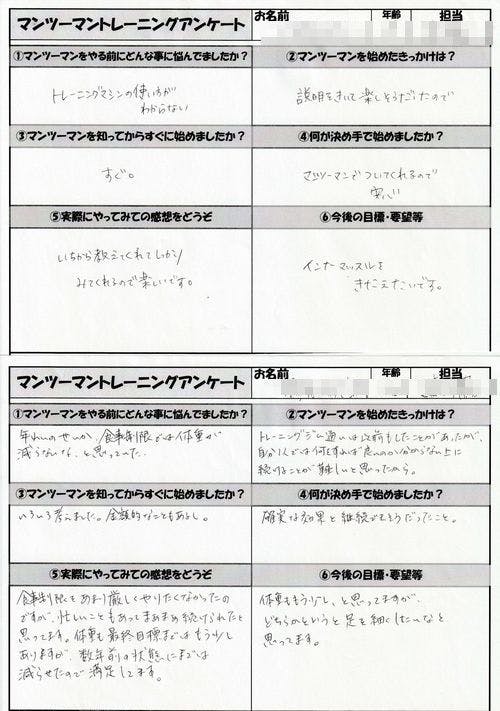 マンツーマントレーニングアンケート
お名前
年齢
担当
①マンツーマンをやる前にどんな事に悩んでましたか?
②マンツーマンを始めたきっかけは?
トレーニングマシンの使い方が
わからない
説明をきいて楽しそうだったので
③マンツーマンを知ってからすぐに始めましたか?
④何が決め手で始めましたか?
すぐ。
マンツーマンでついてくれるので
安心
⑤実際にやってみての感想をどうぞ
⑥今後の目標・要望等
いちから教えてくれてしっかり
みてくれるので楽しいです。
インナーマッスルを
きたえたいです。
マンツーマントレーニングアンケート
お名前
年齢
担当
①マンツーマンをやる前にどんな事に悩んでましたか?
②マンツーマンを始めたきっかけは?
年れいのせいか、食事制限では体重が
減らないな、と思っていた。
トレーニングジム通いは以前もしたことがあったが、
自分1人では何をすれば良いのか分からない上に
続けることが難しいと思ったから。
③マンツーマンを知ってからすぐに始めましたか?
④何が決め手で始めましたか?
いろいろ考えました。金額的なこともあるし。
確実な効果と継続できそうだったこと。
⑤実際にやってみての感想をどうぞ
⑥今後の目標・要望等
食事制限をあまり厳しくやりたくなかったの
ですが、忙しいこともあってまあまあ続けられたと
思ってます。体重も最終目標まではもう少し
ありますが、数年前の状態にまでは
減らせたので満足してます。
体重ももう少し、と思ってますが、
どちらかというと足を細くしたいなと
思ってます。